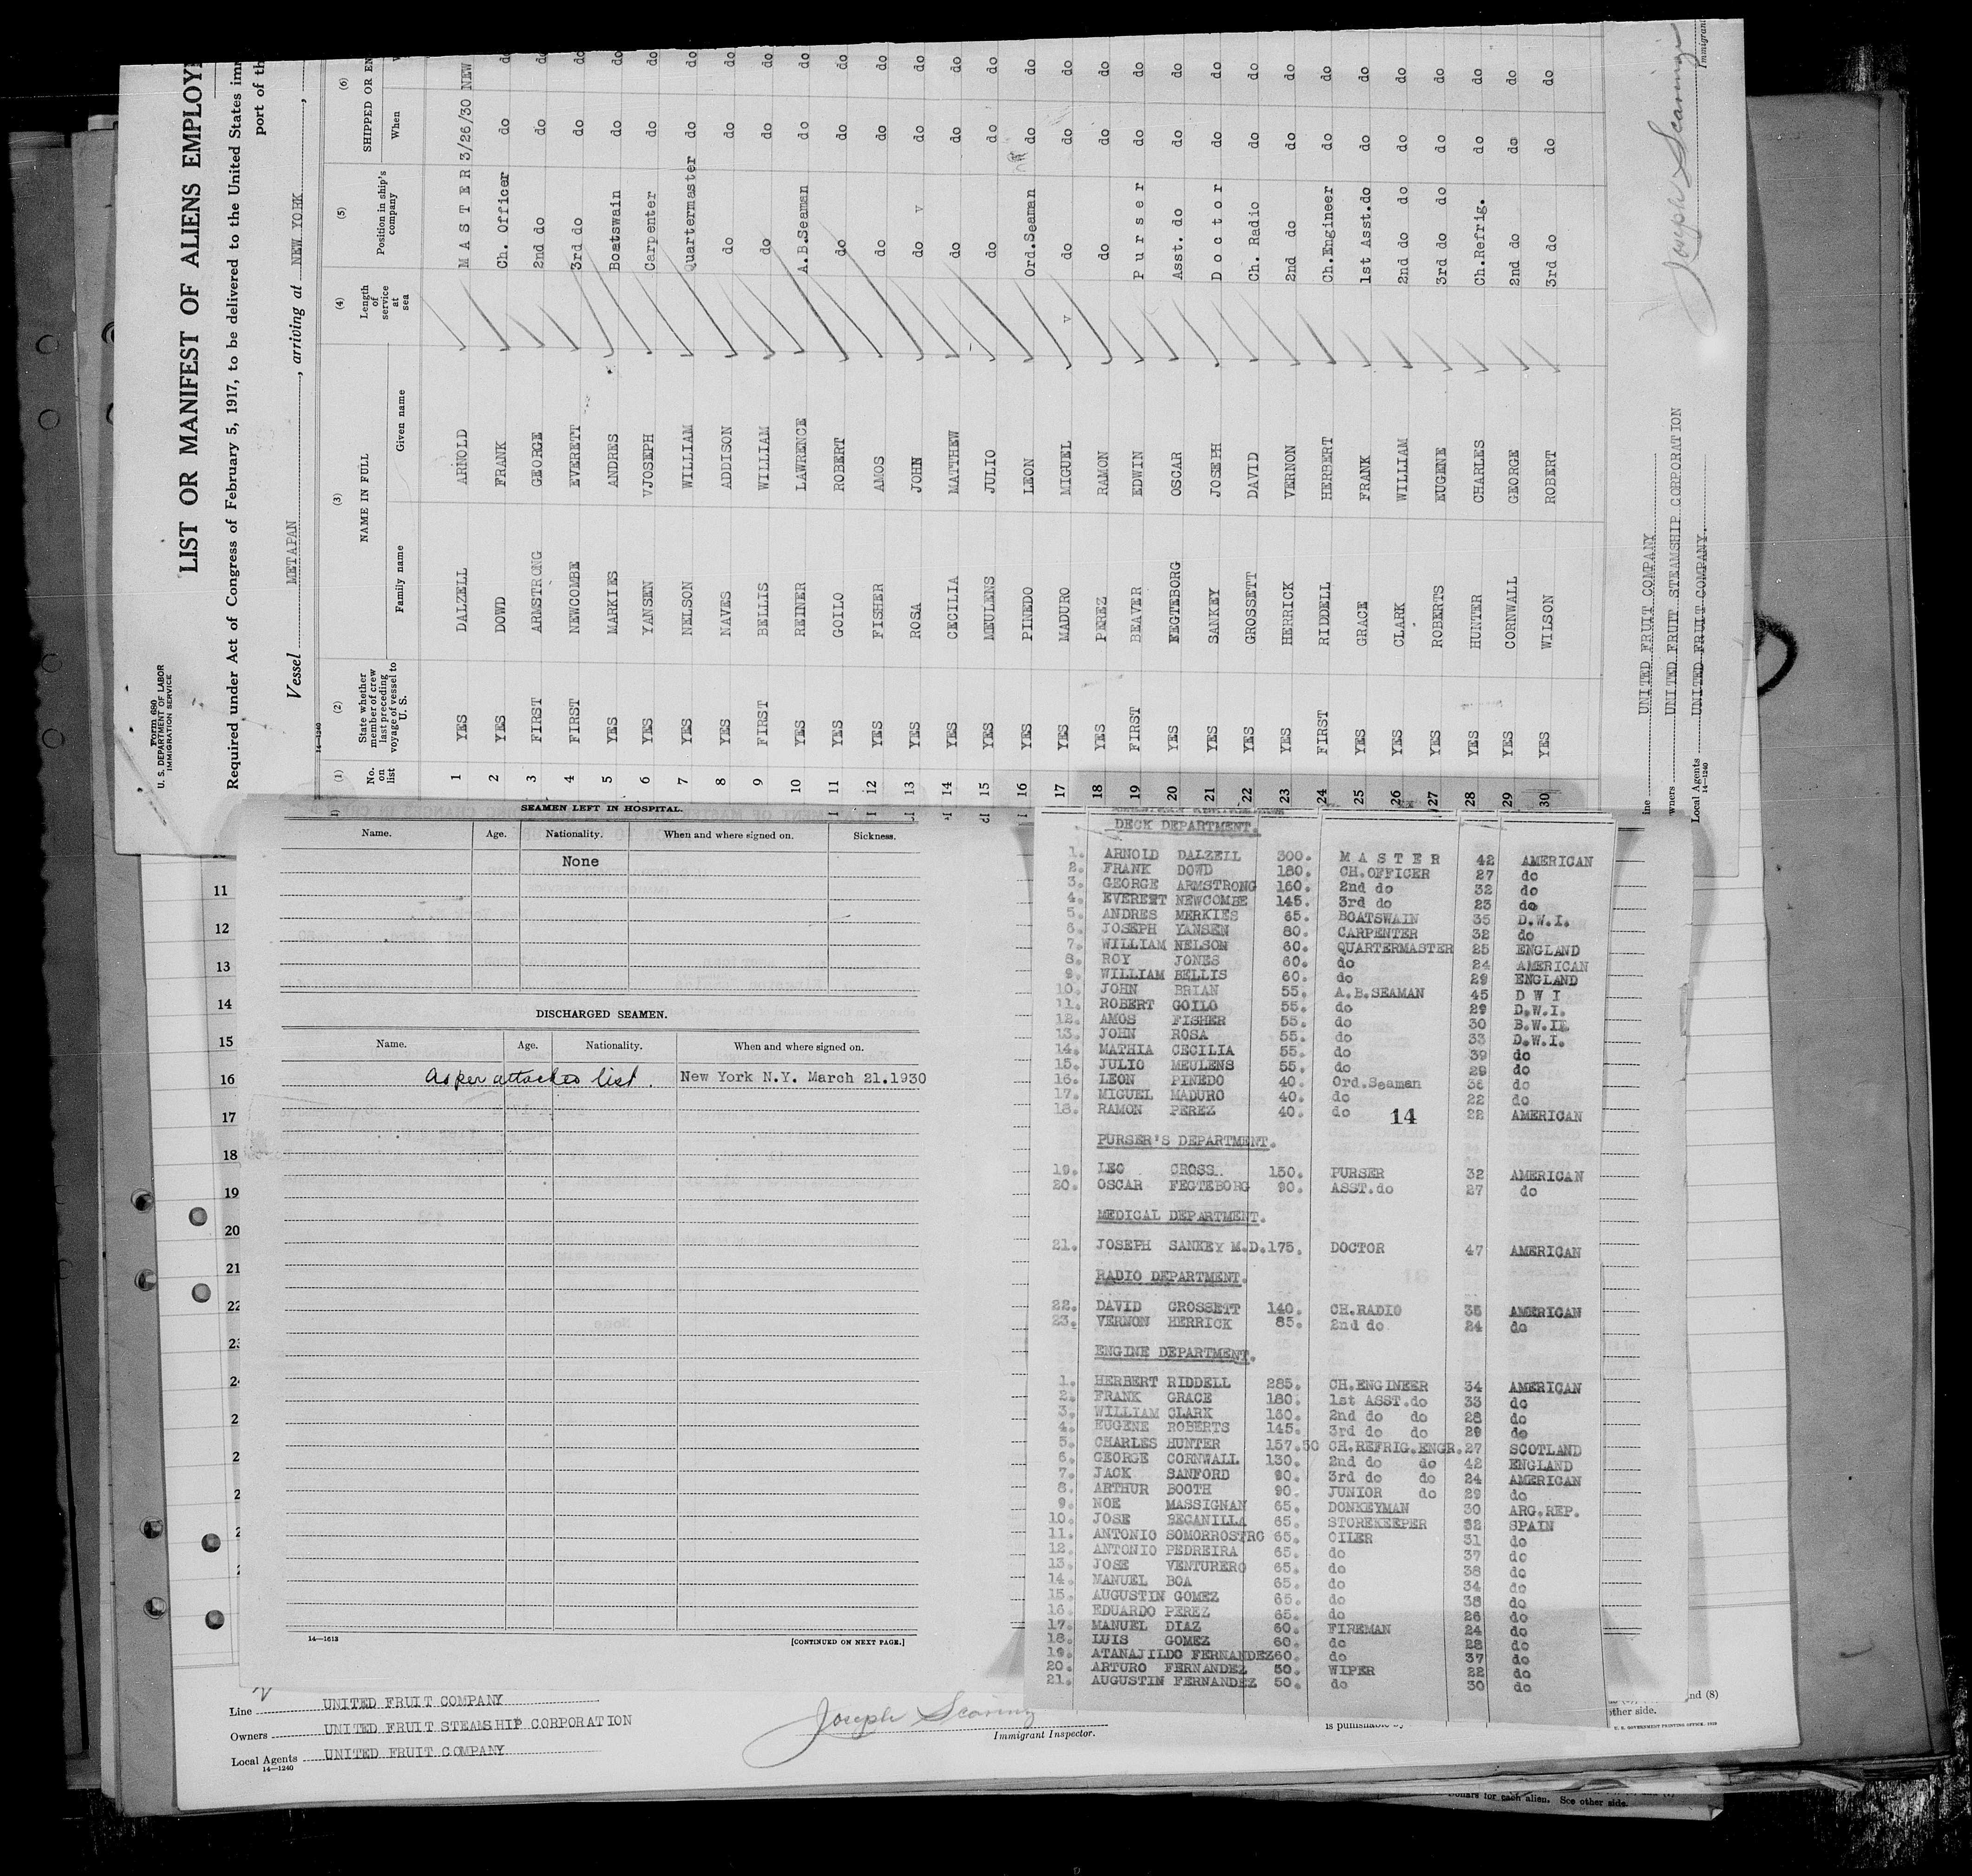 Form 680
U. S. DEPARTMENT OF LABOR
IMMIGRATION SERVICE
LIST OR MANIFEST OF ALIENS EMPLOY
Required under Act of Congress of February 5, 1917, to be delivered to the United States
port of
Vessel METAPAN, arriving at NEW YORK,
14—1240
(1) (2) (3) (4) (5) (6)
No. on list
State whether member of crew last preceding voyage of vessel to U. S.
NAME IN FULL
Family name Given name
Length of service at sea
Position in ship's company
SHIPPED OR EN
When
1 YES DALZELL ARNOLD M A S T E R 3/26/30 NEW
2 YES DOWD FRANK Ch. Officer do do
3 FIRST ARMSTRONG GEORGE 2nd do do do
4 FIRST NEWCOMBE EVERETT 3rd do do do
5 YES MARKIES ANDRES Boatswain do do
6 YES YANSEN VJOSEPH Carpenter do do
7 YES NELSON WILLIAM Quartermaster do do
8 YES NAVES ADDISON do do do
9 FIRST BELLIS WILLIAM do do do
10 YES REINER LAWRENCE A.B.Seaman do do
11 YES GOILO ROBERT do do do
12 YES FISHER AMOS do do do
13 YES ROSA JOHN do v do do
14 YES CECILIA MATTHEW do do do
15 YES MEULENS JULIO do do do
16 YES PINEDO LEON Ord.Seaman do do
17 YES MADURO MIGUEL v do do do
18 YES PEREZ RAMON do do do
19 FIRST BEAVER EDWIN P u r s e r do do
20 YES FEGTEBORG OSCAR Asst. do do do
21 YES SANKEY JOSEPH D o c t o r do do
22 YES GROSSETT DAVID Ch. Radio do do
23 YES HERRICK VERNON 2nd do do do
24 FIRST RIDDELL HERBERT Ch.Engineer do do
25 YES GRACE FRANK 1st Asst.do do do
26 YES CLARK WILLIAM 2nd do do do do
27 YES ROBERTS EUGENE 3rd do do do do
28 YES HUNTER CHARLES Ch.Refrig. do do
29 YES CORNWALL GEORGE 2nd do do do
30 YES WILSON ROBERT 3rd do do do
ine UNITED FRUIT COMPANY
wners UNITED FRUIT STEAMSHIP CORPORATION
Local Agents UNITED FRUIT COMPANY.
14—1240
Immigrant
SEAMEN LEFT IN HOSPITAL.
Name. Age. Nationality. When and where signed on. Sickness.
None
DISCHARGED SEAMEN.
Name. Age. Nationality. When and where signed on.
As per attached list. New York N.Y. March 21.1930
14—1613 [CONTINUED ON NEXT PAGE.]
11
12
13
14
15
16
17
18
19
20
21
22
DECK DEPARTMENT.
1. ARNOLD DALZELL 300. M A S T E R 42 AMERICAN
2. FRANK DOWD 180. CH.OFFICER 27 do
3. GEORGE ARMSTRONG 160. 2nd do 32 do
4. EVEREET NEWCOMBE 145. 3rd do 23 do
5. ANDRES MERKIES 65. BOATSWAIN 35 D.W.I.
6. JOSEPH YANSEN 80. CARPENTER 32 do
7. WILLIAM NELSON 60. QUARTERMASTER 25 ENGLAND
8. ROY JONES 60. do 24 AMERICAN
9. WILLIAM BELLIS 60. do 29 ENGLAND
10. JOHN BRIAN 55. A.B.SEAMAN 45 D W I
11. ROBERT GOILO 55. do 29 D.W.I.
12. AMOS FISHER 55. do 30 B.W.I.
13. JOHN ROSA 55. do 33 D.W.I.
14. MATHIA CECILIA 55. do 39 do
15. JULIO MEULENS 55. do 29 do
16. LEON PINEDO 40. Ord.Seaman do
17. MIGUEL MADURO 40. do 22 do
18. RAMON PEREZ 40. do 14 22 AMERICAN
PURSER'S DEPARTMENT.
19. LEO CROSS 150. PURSER 32 AMERICAN
20. OSCAR FEGTEBORG 90. ASST.do 27 do
MEDICAL DEPARTMENT.
21. JOSEPH SANKEY M.D.175. DOCTOR 47 AMERICAN
RADIO DEPARTMENT.
22. DAVID GROSSETT 140. CH.RADIO 35 AMERICAN
23. VERNON HERRICK 85. 2nd do 24 do
ENGINE DEPARTMENT.
1. HERBERT RIDDELL 285. CH.ENGINEER 34 AMERICAN
2. FRANK GRACE 180. 1st ASST.do 33 do
3. WILLIAM CLARK 160. 2nd do do 28 do
4. EUGENE ROBERTS 145. 3rd do do 29 do
5. CHARLES HUNTER 157.50 CH.REFRIG.ENGR.27 SCOTLAND
6. GEORGE CORNWALL 130. 2nd do do 42 ENGLAND
7. JACK SANFORD 90. 3rd do do 24 AMERICAN
8. ARTHUR BOOTH 90. JUNIOR do 29 do
9. NOE MASSIGNAN 65. DONKEYMAN 30 ARG.REP.
10. JOSE SECANILLA 65. STOREKEEPER 32 SPAIN
11. ANTONIO SOMORROSTRO 65. OILER 31 do
12. ANTONIO PEDREIRA 65. do 37 do
13. JOSE VENTURERO 65. do 38 do
14. MANUEL BOA 65. do 34 do
15. AUGUSTIN GOMEZ 65. do 38 do
16. EDUARDO PEREZ 65. do 26 do
17. MANUEL DIAZ 60. FIREMAN 24 do
18. LUIS GOMEZ 60. do 28 do
19. ATANAJILDO FERNANDEZ60. do 37 do
20. ARTURO FERNANDEZ 50. WIPER 22 do
21. AUGUSTIN FERNANDEZ 50. do 30 do
Line UNITED FRUIT COMPANY
Owners UNITED FRUIT STEAMSHIP CORPORATION
Local Agents UNITED FRUIT COMPANY
14—1240
Immigrant Inspector.
is punishable by
nd (8)
other side.
U. S. GOVERNMENT PRINTING OFFICE
dollars for each alien. See other side.